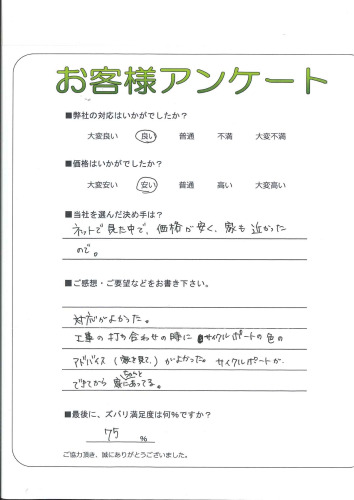 お客様アンケート
■弊社の対応はいかがでしたか？
大変良い 良い 普通 不満 大変不満
■価格はいかがでしたか？
大変安い 安い 普通 高い 大変高い
■当社を選んだ決め手は？
ネットで見た中で、価格が安く、家も近かった
ので。
■ご感想・ご要望などをお書き下さい。
対応がよかった。
工事の打ち合わせの時にサイクルポートの色の
アドバイス（家を見て）がよかった。サイクルポートが
できてから家にちゃんとあってる。
■最後に、ズバリ満足度は何％ですか？
75 ％
ご協力頂き、誠にありがとうございました。